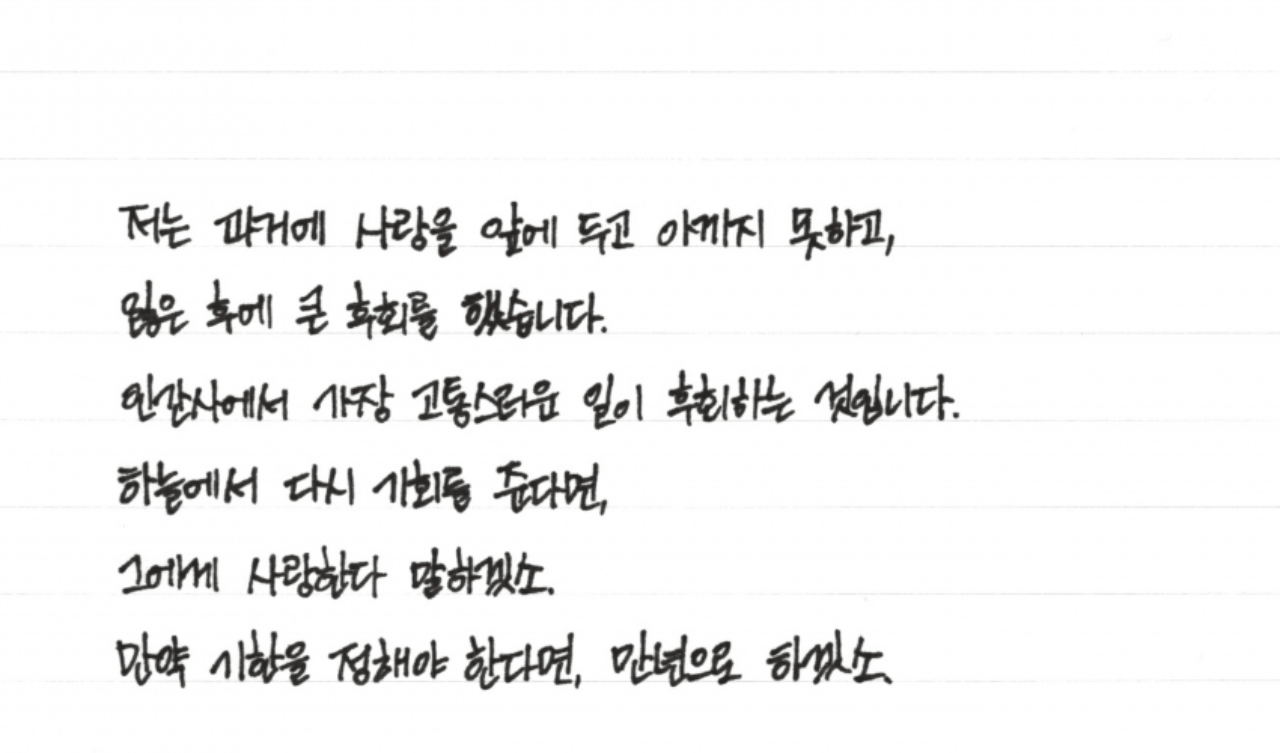 저는 과거에 사랑을 앞에 두고 아끼지 못하고,
잃은 후에 큰 후회를 했습니다.
인간사에서 가장 고통스러운 일이 후회하는 것입니다.
하늘에서 다시 기회를 준다면,
그에게 사랑한다 말하겠소.
만약 기한을 정해야 한다면, 만년으로 하겠소.